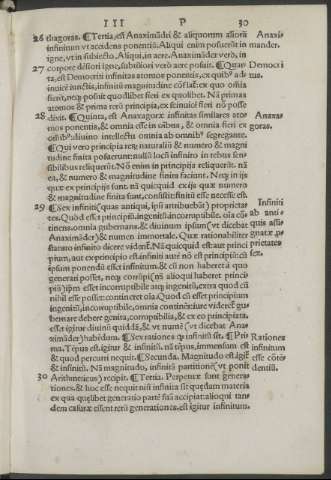 III P 30
26 thagoras. ¶Tertia, est Anaximãdri & aliquorum aliorũ Anaxi
infinitum vt accidens ponentiũ. Aliqui enim posuerũt in mander.
igne, vt in subiecto. Aliqui, in aere. Anaximãder verò, in
27 corpore dẽsiori igne, subtiliori verò aere posuit. ¶Quar Democri
ta, est Democriti infinitas atomos ponentis, ex quibꝰ ad tus.
inuicẽ iunctis, infinitũ magnitudine cõflat: ex quo omia
fierũt, neq; posuit quodlibet fieri ex quolibet. Nã primas
atomos & prima rerũ principia, ex seinuicẽ fieri nõ posse
28 dixit. ¶Quinta, est Anaxagoræ infinitas similares ato Anaxa
mos ponentis, & omnia esse in oĩbus, & omnia fieri ex goras.
oĩbꝰ: diuino intellectu omnia ab omnibꝰ segregante.
¶Qui vero principia reȝ naturaliũ & numero & magni
tudine finita posuerunt: nullũ locũ infinito in rebus sen-
sibilibus reliquerũt. Nõ enim in principijs reliquerũt. nã
ea, & numero & magnitudine finita faciunt. Neq; in ijs
quæ ex principijs sunt. nã quicquid ex ijs quæ numero
& magnitudine finita sunt, consistit: finitũ esse necesse est.
29 ¶Sex infinitĩ (quas antiqui, ipsi attribuebãt) proprieta Infiniti
tes. Quòd esset principiũ. ingenitũ. incorruptibile. oĩa cõ ab anti
tinens. omnia gubernans. & diuinum ipsum (vt dicebat quis assi
Anaximãder) & numen immortale. Quæ rationabiliter gnatæ p
statuto infinito dicere viderent. Nã quicquid est: aut princi prietates
pium, aut ex principio est. infiniti autẽ nõ est principiũ: cũ sex.
ipsum ponendũ esset infinitum. & cũ non haberet à quo
generari posset, neq; corrũpi (nõ alioqui haberet princi-
piũ) ipsum esset incorruptibile atq; ingenitũ, extra quod cũ
nihil esse posset: contineret oĩa. Quod cũ esset principium
ingenitũ, incorruptibile, omnia continẽs: iure videret gu-
bernare debere genita, corruptibilia, & ex eo principiata.
esset igitur diuinũ quiddã, & vt numẽ (vt dicebat Ana-
ximãder) habẽdum. ¶Sex rationes q; infinitũ sit. ¶Pri Rationes
ma. Tẽpus est, igitur & infinitũ. nã tẽpus, immensum est infinitum
& quod percurri nequit. ¶Secunda. Magnitudo est. igit esse cõtẽ
& infinitũ. Nã magnitudo, infiniti partitionẽ (vt ponit dentiũ.
30 Arithmeticus) recipit. ¶Tertia. Perpetuæ sunt genera-
tiones. & hoc esse nequit nisi infinita sit quædam materia
ex qua quælibet generatio partẽ suã accipiat: alioqui tan-
dem casuræ essent rerũ generationes. est igitur infinitum.